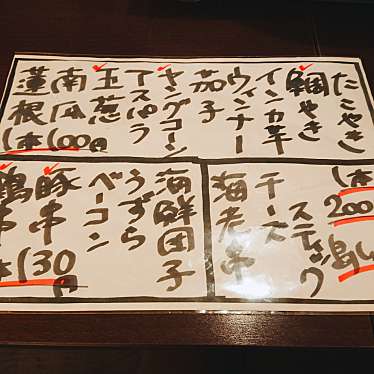 たこやき
鯛やき
インカ芋
ウィンナー
茄子
ヤングコーン
アスパラ
玉葱
南瓜
蓮根
1本100円
海鮮団子
うずら
ベーコン
豚串
鶏串
本130円
1本
200
スティック
チーズ
海老串